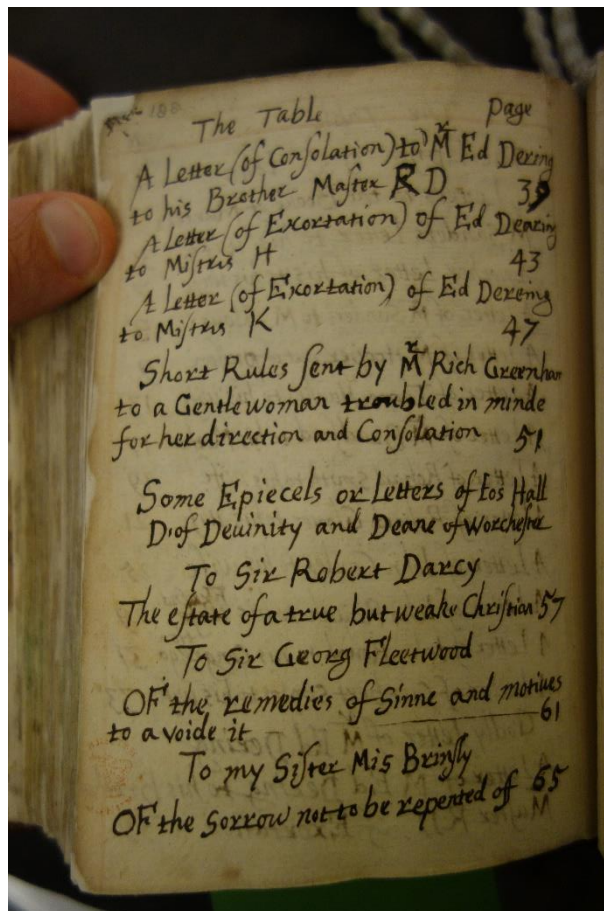 188
The Table Page
A Letter (of Consolation) to Mr Ed Dering
to his Brother Master R D 39
A Letter (of Exortation) of Ed Dearing
to Mistris H 43
A Letter (of Exortation) of Ed Dereing
to Mistris K 47
Short Rules sent by Mr Rich Greenham
to a Gentlewoman troubled in minde
for her direction and Consolation 51
Some Epiecels or Letters of Ios Hall
D. of Deuinity and Deane of Worchester
To Sir Robert Darcy
The estate of a true but weake Christian 57
To Sir Georg Fleetwood
OF the remedies of Sinne and motiues
to a voide it 61
To my Sister Mis Brinsly
OF the Sorrow not to be repented of 65